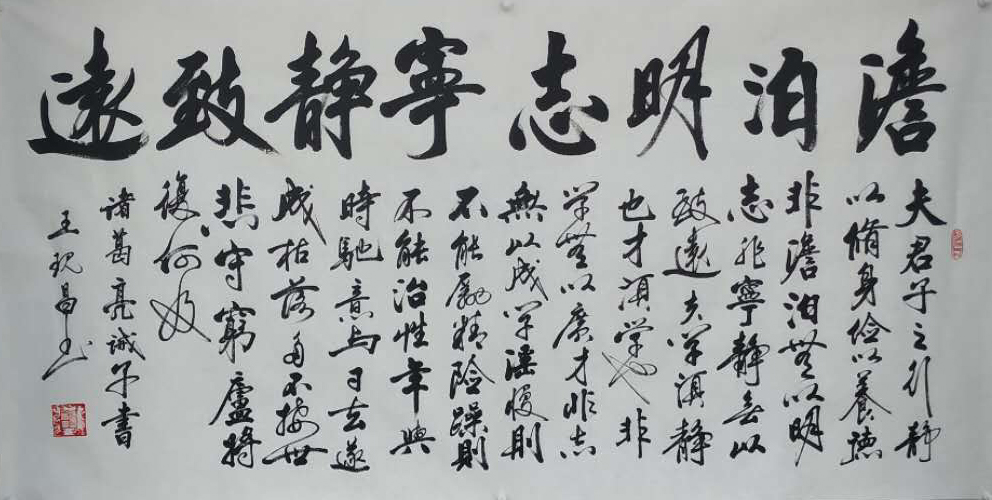 澹泊明志寧静致遠
夫君子之行静
以脩身儉以養德
非澹泊無以明
志非寧静無以
致遠夫学須静
也才須学也非
学無以廣才非志
無以成学滛慢則
不能勵精險躁則
不能治性年與
時馳意与日去遂
成枯落多不接世
悲守窮廬將
復何及
諸葛亮誡子書
王现昌书